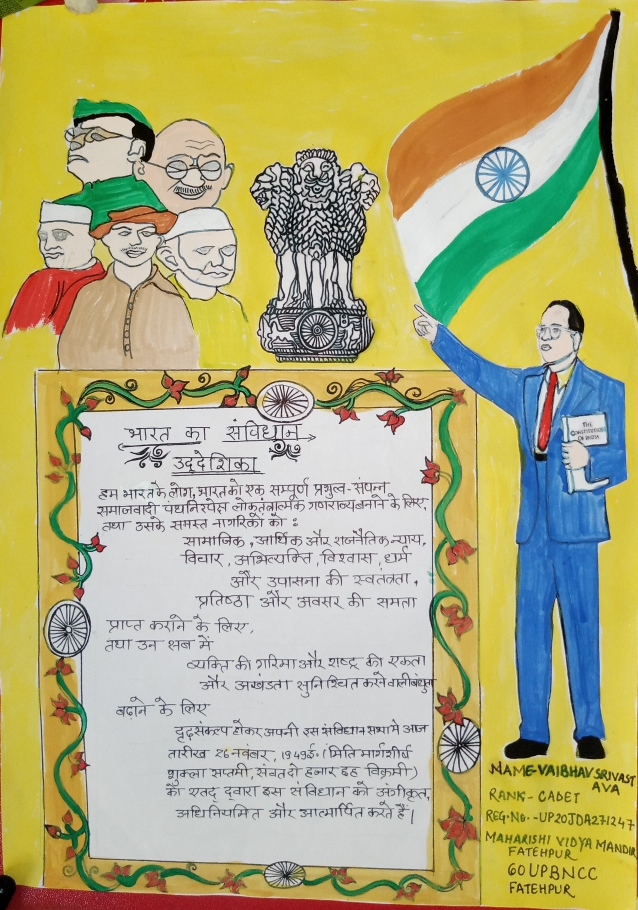 THE
CONSTITUTION
OF INDIA
भारत का संविधान
उद्देशिका
हम भारत के लोग, भारत को एक सम्पूर्ण प्रभुत्व-संपन्न
समाजवादी पंथनिरपेक्ष लोकतंत्रात्मक गणराज्य बनाने के लिए,
तथा उसके समस्त नागरिकों को :
सामाजिक, आर्थिक और राजनैतिक न्याय,
विचार, अभिव्यक्ति, विश्वास, धर्म
और उपासना की स्वतंत्रता,
प्रतिष्ठा और अवसर की समता
प्राप्त कराने के लिए,
तथा उन सब में
व्यक्ति की गरिमा और राष्ट्र की एकता
और अखंडता सुनिश्चित करने वाली बंधुता
बढ़ाने के लिए
दृढ़संकल्प होकर अपनी इस संविधान सभा में आज
तारीख 26 नवंबर, 1949ई. (मिति मार्गशीर्ष
शुक्ला सप्तमी, संवत दो हजार छह विक्रमी)
को एतद् द्वारा इस संविधान को अंगीकृत,
अधिनियमित और आत्मार्पित करते हैं।
NAME-VAIBHAV SRIVAST
AVA
RANK - CADET
REG.NO. - UP20JDA271247
MAHARISHI VIDYA MANDIR
FATEHPUR
60 UPBNCC
FATEHPUR